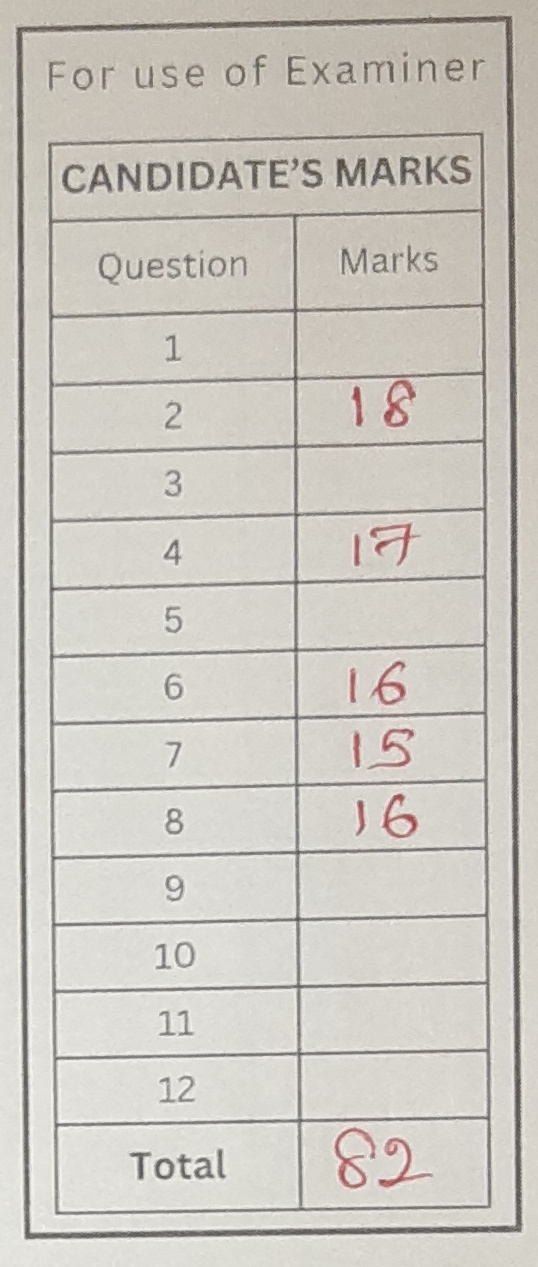 For use of Examiner
CANDIDATE'S MARKS
Question Marks
1
2 18
3
4 17
5
6 16
7 15
8 16
9
10
11
12
Total 82